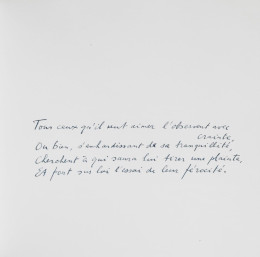 Tous ceux qu'il veut aimer l'observent avec
crainte,
Ou bien, s'enhardissant de sa tranquillité,
Cherchent à qui saura lui tirer une plainte,
Et font sur lui l'essai de leur férocité.